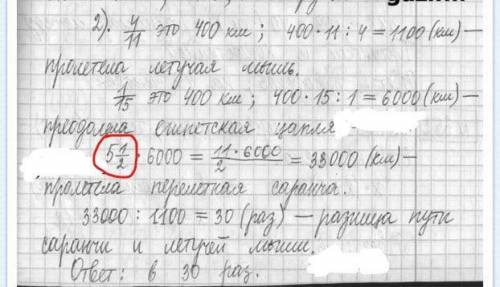 2). 4/11 это 400 км; 400·11:4=1100(км)—
пролетела летучая мышь.
1/15 это 400 км; 400·15:1=6000(км)—
преодолела египетская цапля
5 1/2·6000=11·6000/2=33000(км)—
пролетела перелетная саранча.
33000:1100=30(раз)—разница пути
саранчи и летучей мыши.
Ответ: в 30 раз.